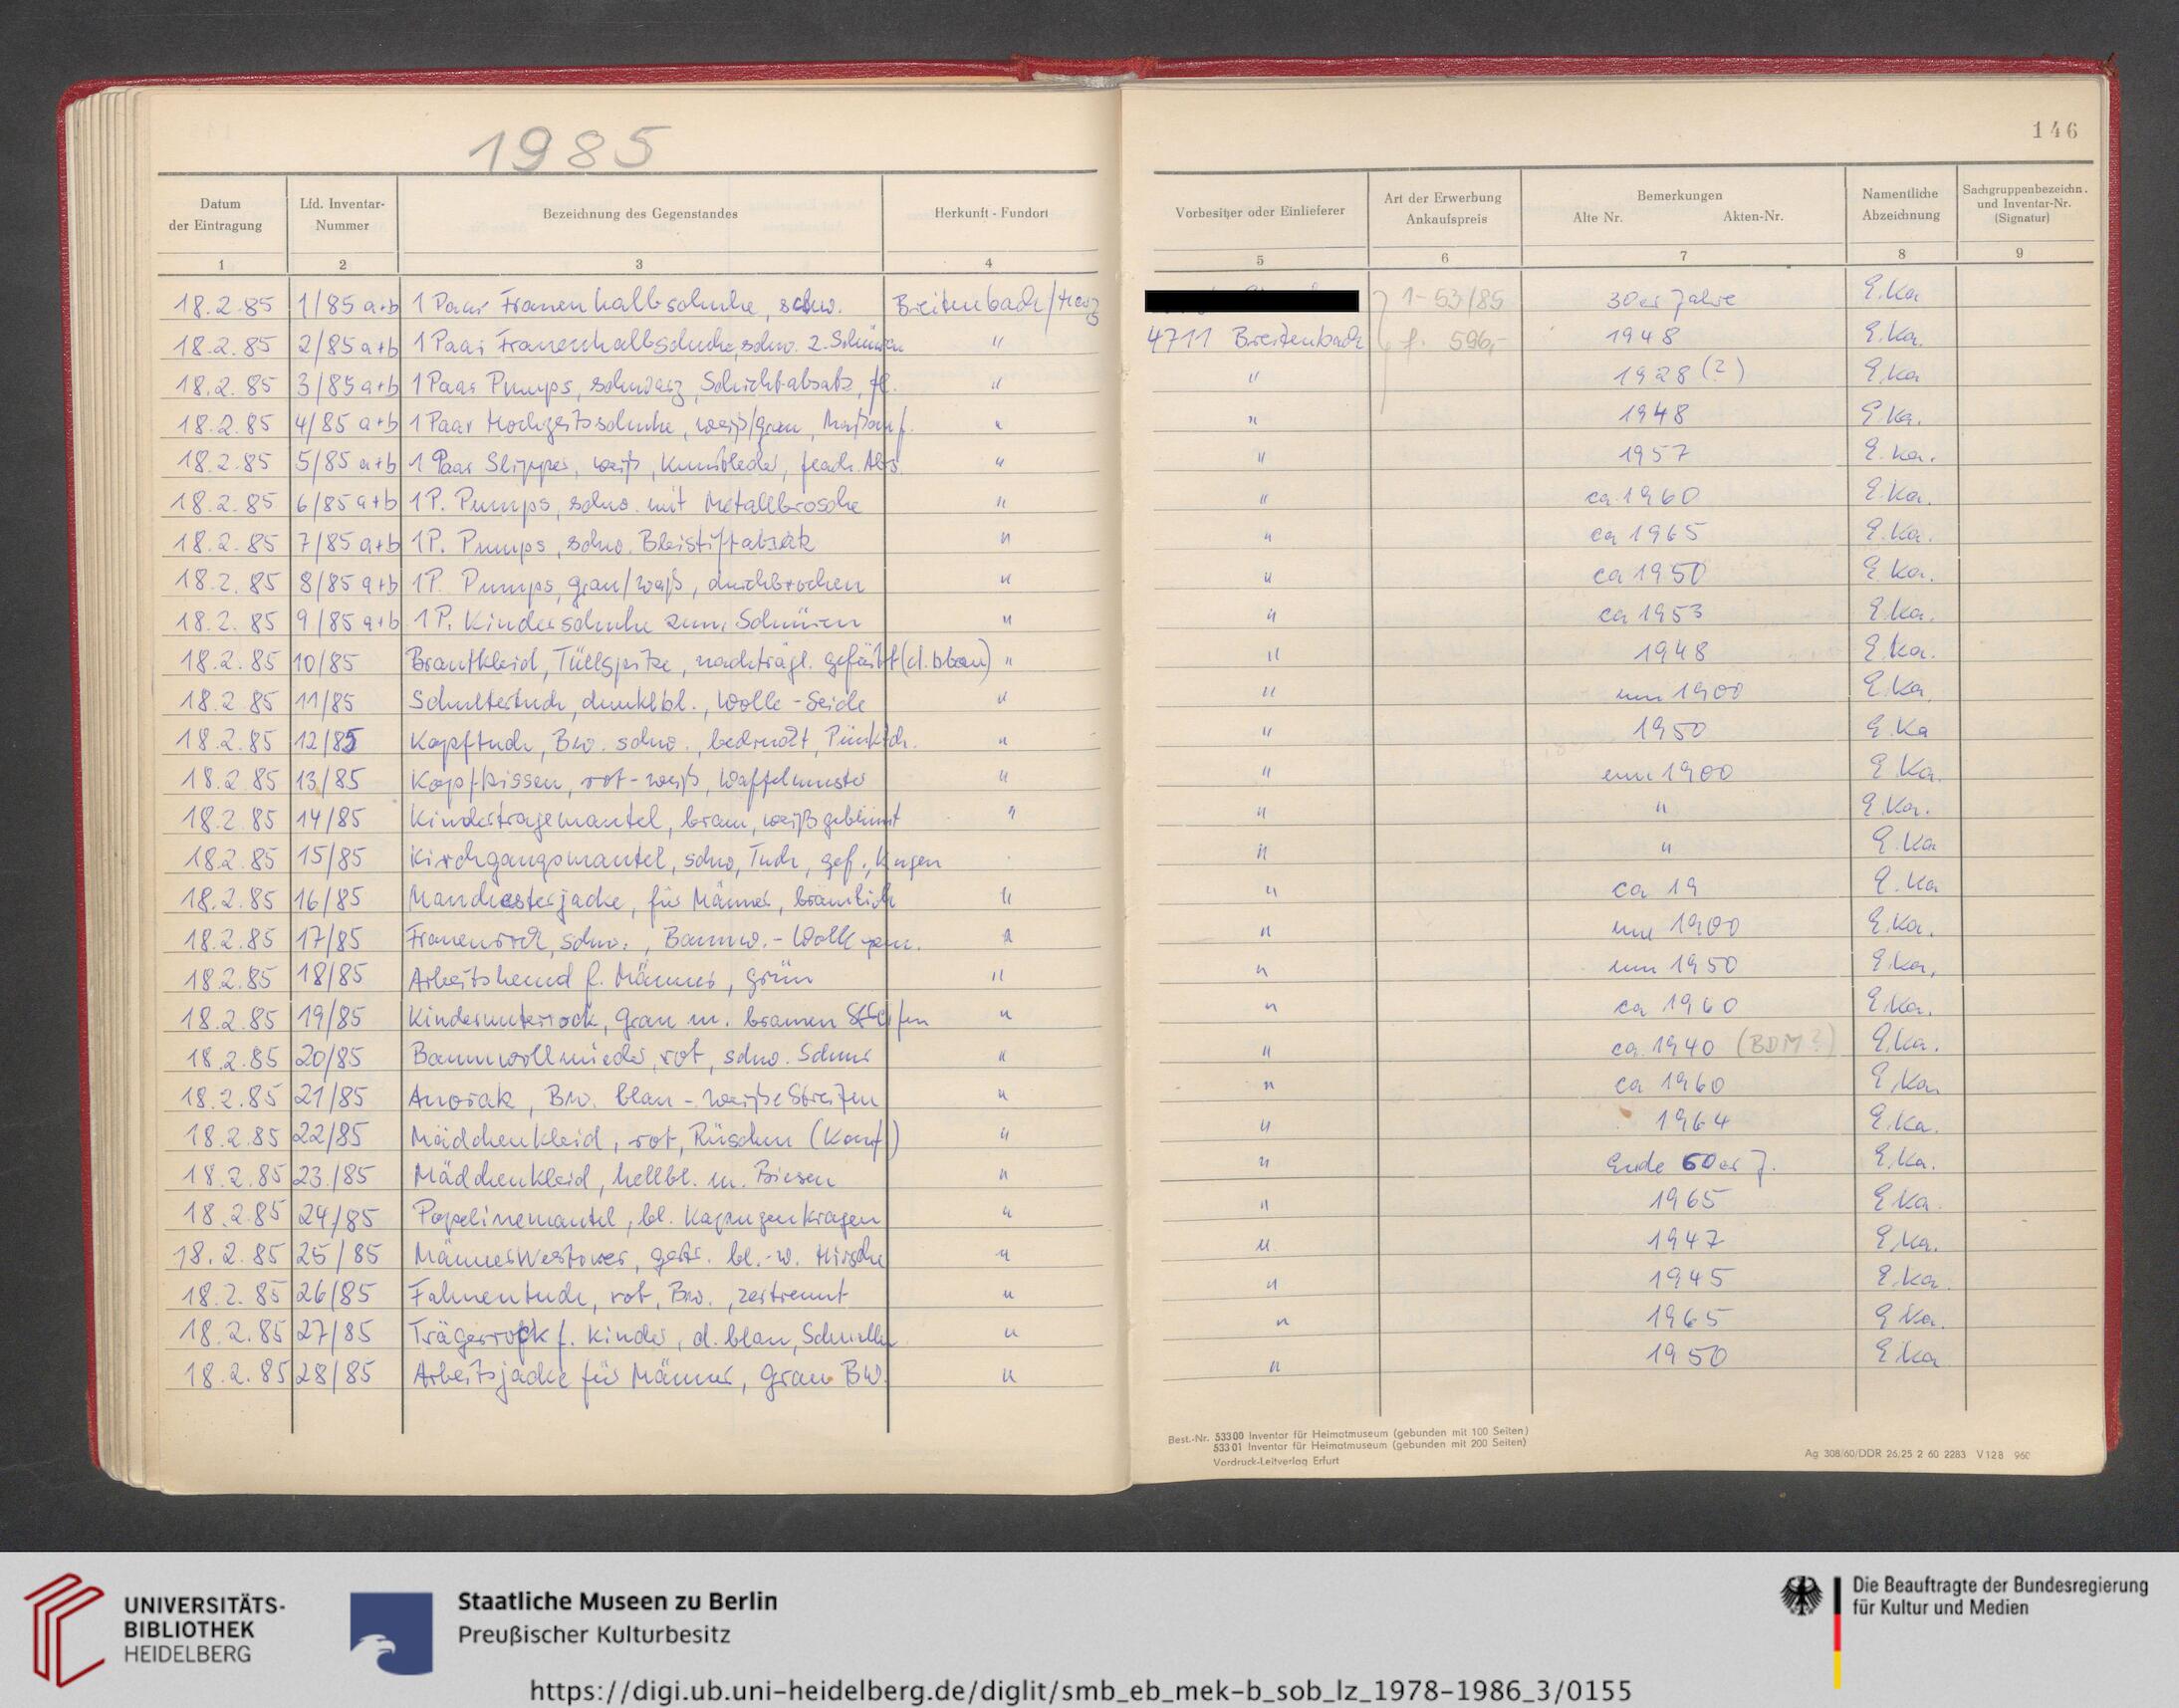 1985
146
Datum der Eintragung | Lfd. Inventar-Nummer | Bezeichnung des Gegenstandes | Herkunft - Fundort | Vorbesitzer oder Einlieferer | Art der Erwerbung Ankaufspreis | Bemerkungen Alte Nr. Akten-Nr. | Namentliche Abzeichnung | Sachgruppenbezeichn. und Inventar-Nr. (Signatur)
1 | 2 | 3 | 4 | 5 | 6 | 7 | 8 | 9
18.2.85 | 1/85 a+b | 1 Paar Frauenhalbschuhe, schw. | Breitenbach/Harz | | 1-53/85 | 30er Jahre | E.Ka
18.2.85 | 2/85 a+b | 1 Paar Frauenhalbschuhe, schw. z. Schnüren | " | 4711 Breitenbach | f. 596,- | 1948 | E.Ka.
18.2.85 | 3/85 a+b | 1 Paar Pumps, schwarz, Schichtabsatz, | " | " | | 1928 (?) | E.Ka
18.2.85 | 4/85 a+b | 1 Paar Hochzeitsschuhe, weiß/grau, Maßanf. | " | " | | 1948 | E.Ka.
18.2.85 | 5/85 a+b | 1 Paar Slipper, weiß, Kunstleder, flach. Abs. | " | " | | 1957 | E.Ka.
18.2.85 | 6/85 a+b | 1 P. Pumps, schw. mit Metallbrosche | " | " | | ca. 1960 | E.Ka.
18.2.85 | 7/85 a+b | 1 P. Pumps, schw. Bleistiftabsätz | " | " | | ca 1965 | E.Ka.
18.2.85 | 8/85 a+b | 1 P. Pumps, grau/weiß, durchbrochen | " | " | | ca 1950 | E.Ka.
18.2.85 | 9/85 a+b | 1 P. Kinderschuhe zum Schnüren | " | " | | ca 1953 | E.Ka.
18.2.85 | 10/85 | Brautkleid, Tüllspitze, nachträgl. gefärbt (d.blau) | " | " | | 1948 | E.Ka.
18.2.85 | 11/85 | Schultertuch, dunklbl., Wolle-Seide | " | " | | um 1900 | E.Ka.
18.2.85 | 12/85 | Kopftuch, Bw. schw., bedruckt, Pünktch. | " | " | | 1950 | E.Ka
18.2.85 | 13/85 | Kopfkissen, rot-weiß, Waffelmuster | " | " | | um 1900 | E.Ka.
18.2.85 | 14/85 | Kindertragemantel, braun, weiß geblümt | " | " | | " | E.Ka.
18.2.85 | 15/85 | Kirchgangsmantel, schw, Tuch, gef., Kragen | | " | | " | E.Ka
18.2.85 | 16/85 | Manchesterjacke, für Männer, bräunlich | " | " | | ca 19 | E.Ka
18.2.85 | 17/85 | Frauenrock, schw., Baumw.-Woll | " | " | | um 1900 | E.Ka.
18.2.85 | 18/85 | Arbeitshemd f. Männer, grün | " | " | | um 1950 | E.Ka.
18.2.85 | 19/85 | Kinderunterrock, grau m. braunen Streifen | " | " | | ca 1960 | E.Ka.
18.2.85 | 20/85 | Baumwollmieder, rot, schw. Schnur | " | " | | ca. 1940 (BDM?) | E.Ka.
18.2.85 | 21/85 | Anorak, Bw. blau-weiße Streifen | " | " | | ca 1960 | E.Ka.
18.2.85 | 22/85 | Mädchenkleid, rot, Rüschen (Konf.) | " | " | | 1964 | E.Ka.
18.2.85 | 23/85 | Mädchenkleid, hellbl. m. Biesen | " | " | | Ende 60er J. | E.Ka.
18.2.85 | 24/85 | Popelinemantel, bl. Kapuzenkragen | " | " | | 1965 | E.Ka.
18.2.85 | 25/85 | Männerwestover, gestr. bl.-w. Hirsche | " | " | | 1947 | E.Ka.
18.2.85 | 26/85 | Fahnentuch, rot, Bw., zertrennt | " | " | | 1945 | E.Ka.
18.2.85 | 27/85 | Trägerrock f. Kinder, d. blau, Schnallen | " | " | | 1965 | E.Ka.
18.2.85 | 28/85 | Arbeitsjacke für Männer, grau BW. | " | " | | 1950 | E.Ka
Best.-Nr. 53300 Inventar für Heimatmuseum (gebunden mit 100 Seiten)
53301 Inventar für Heimatmuseum (gebunden mit 200 Seiten)
Vordruck-Leitverlag Erfurt
Ag 308/60/DDR 26/25 2 60 2283 V128 960
UNIVERSITÄTS-
BIBLIOTHEK
HEIDELBERG
Staatliche Museen zu Berlin
Preußischer Kulturbesitz
Die Beauftragte der Bundesregierung
für Kultur und Medien
https://digi.ub.uni-heidelberg.de/diglit/smb_eb_mek-b_sob_lz_1978-1986_3/0155